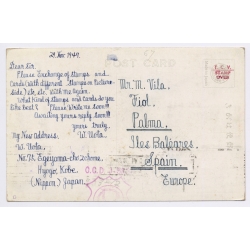 21. Nov. 1949.
Dear Sir.
Please Exchange of Stamps and
Cards (with different Stamps on Picture
Side) etc. etc. with me Again.
What kind of Stamps and Cards do you
like best? Please Write me Soon!!
Awaiting yours reply Soon!!
yours truly.
My New Address. W. Uola.
W. Uola.
Hyogo, Kobe
(Nippon) Japan
POST CARD
T.C.V.
STAMP
OVER
Mr. M. Vila.
Fiol.
Palma.
Iles Baléares.
Spain.
Europe.